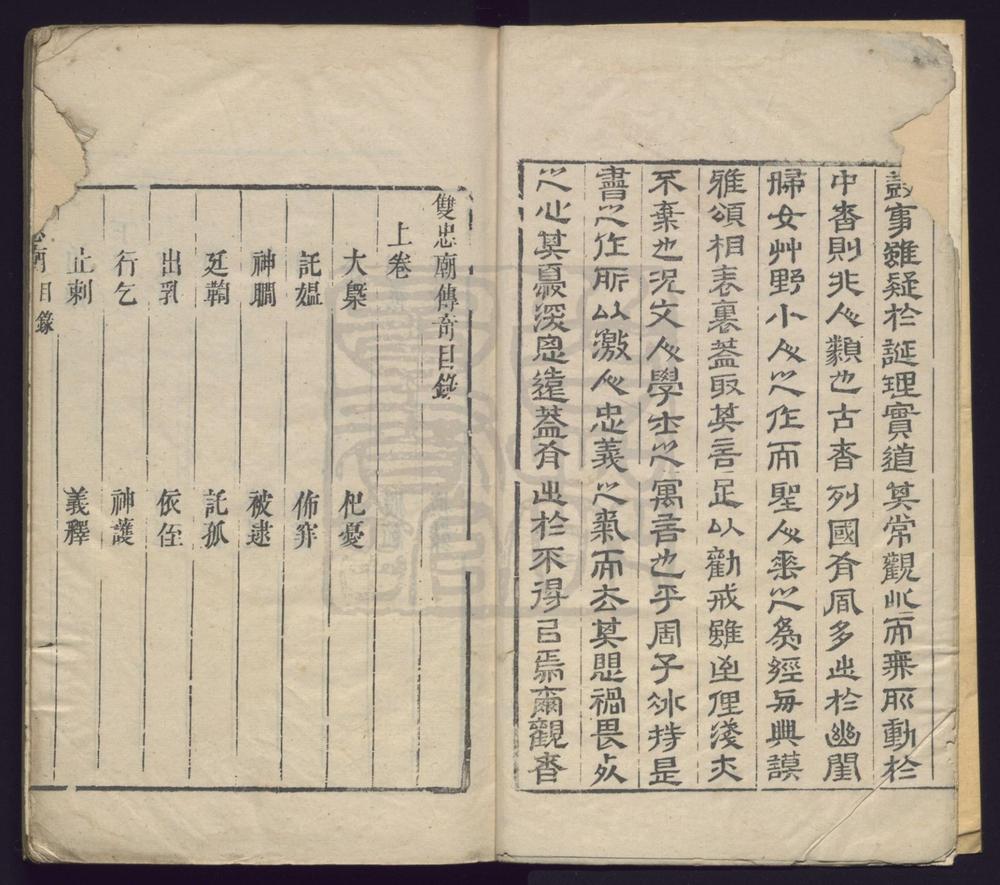 事雖疑於誕理實道其常觀此而無所動於
中者則非人類也古者列國有風多出於幽閨
婦女艸野小人之作而聖人采之為經每與謨
雅頌相表裏蓋取其言足以勸戒雖俚淺
不棄也況文人學士之寓言也乎周子冰持是
書之作所以激人忠義之氣而去其思禍畏死
之心其憂深思遠蓋有出於不得已焉爾觀者
雙忠廟傳奇目錄
上卷
大槩 杞憂
託媼 佈穽
神 被逮
廷鞫 託孤
出乳 依侄
行乞 神護
止刺 義釋
廟目錄